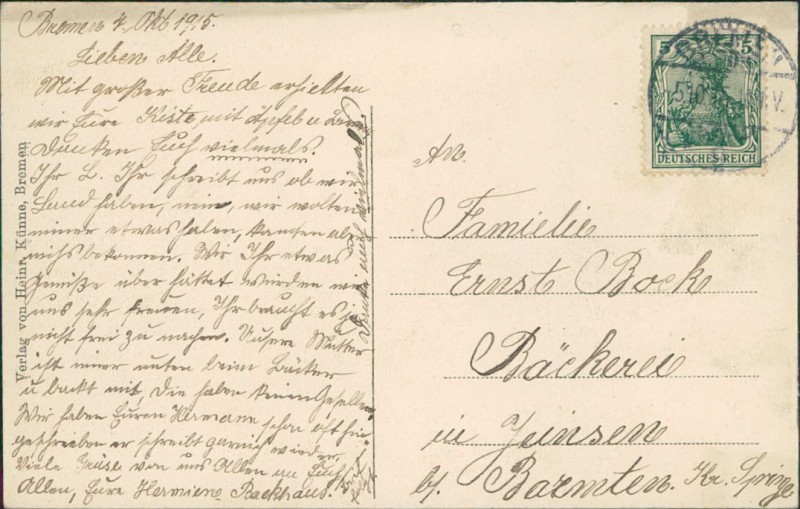 Bremen 4. Okt 1915.
Lieben Alle.
Mit großer Freude erhielten
wir Eure Kiste mit Äpfel u
Danken Euch vielmals.
Ihr L. Ihr schreibt uns ob wir
Land haben, nein, wir wolten
immer etwas haben, kanten aber
nichs bekommen. Wen Ihr etwas
Gemiße über hättet würden wir
uns sehr freuen, Ihr braucht es ja
nicht frei zu machen. Unsere Mutter
ist immer unten beim Bäcker
u backt mit, die haben keinen Gesellen
Wir haben Euren Hermann schon oft hin-
geschrieben er schreibt garnich wieder.
Viele Grüse von uns Allen an Euch
Allen, Eure Hermiene Backhaus.
vielmals
Verlag von Heinr. Künne, Bremen
5 5
DEUTSCHES REICH
BREMEN
5.10
V.
An.
Famielie
Ernst Bock
Bäckerei
in Jeinsen
b/. Barmten. Kr. Springe